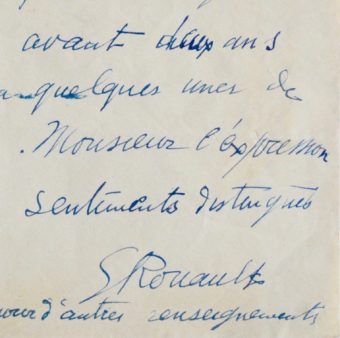 avant deux ans
quelques unes de
Monsieur l'expression
sentiments distingués
G Rouault
pour d'autres renseignements